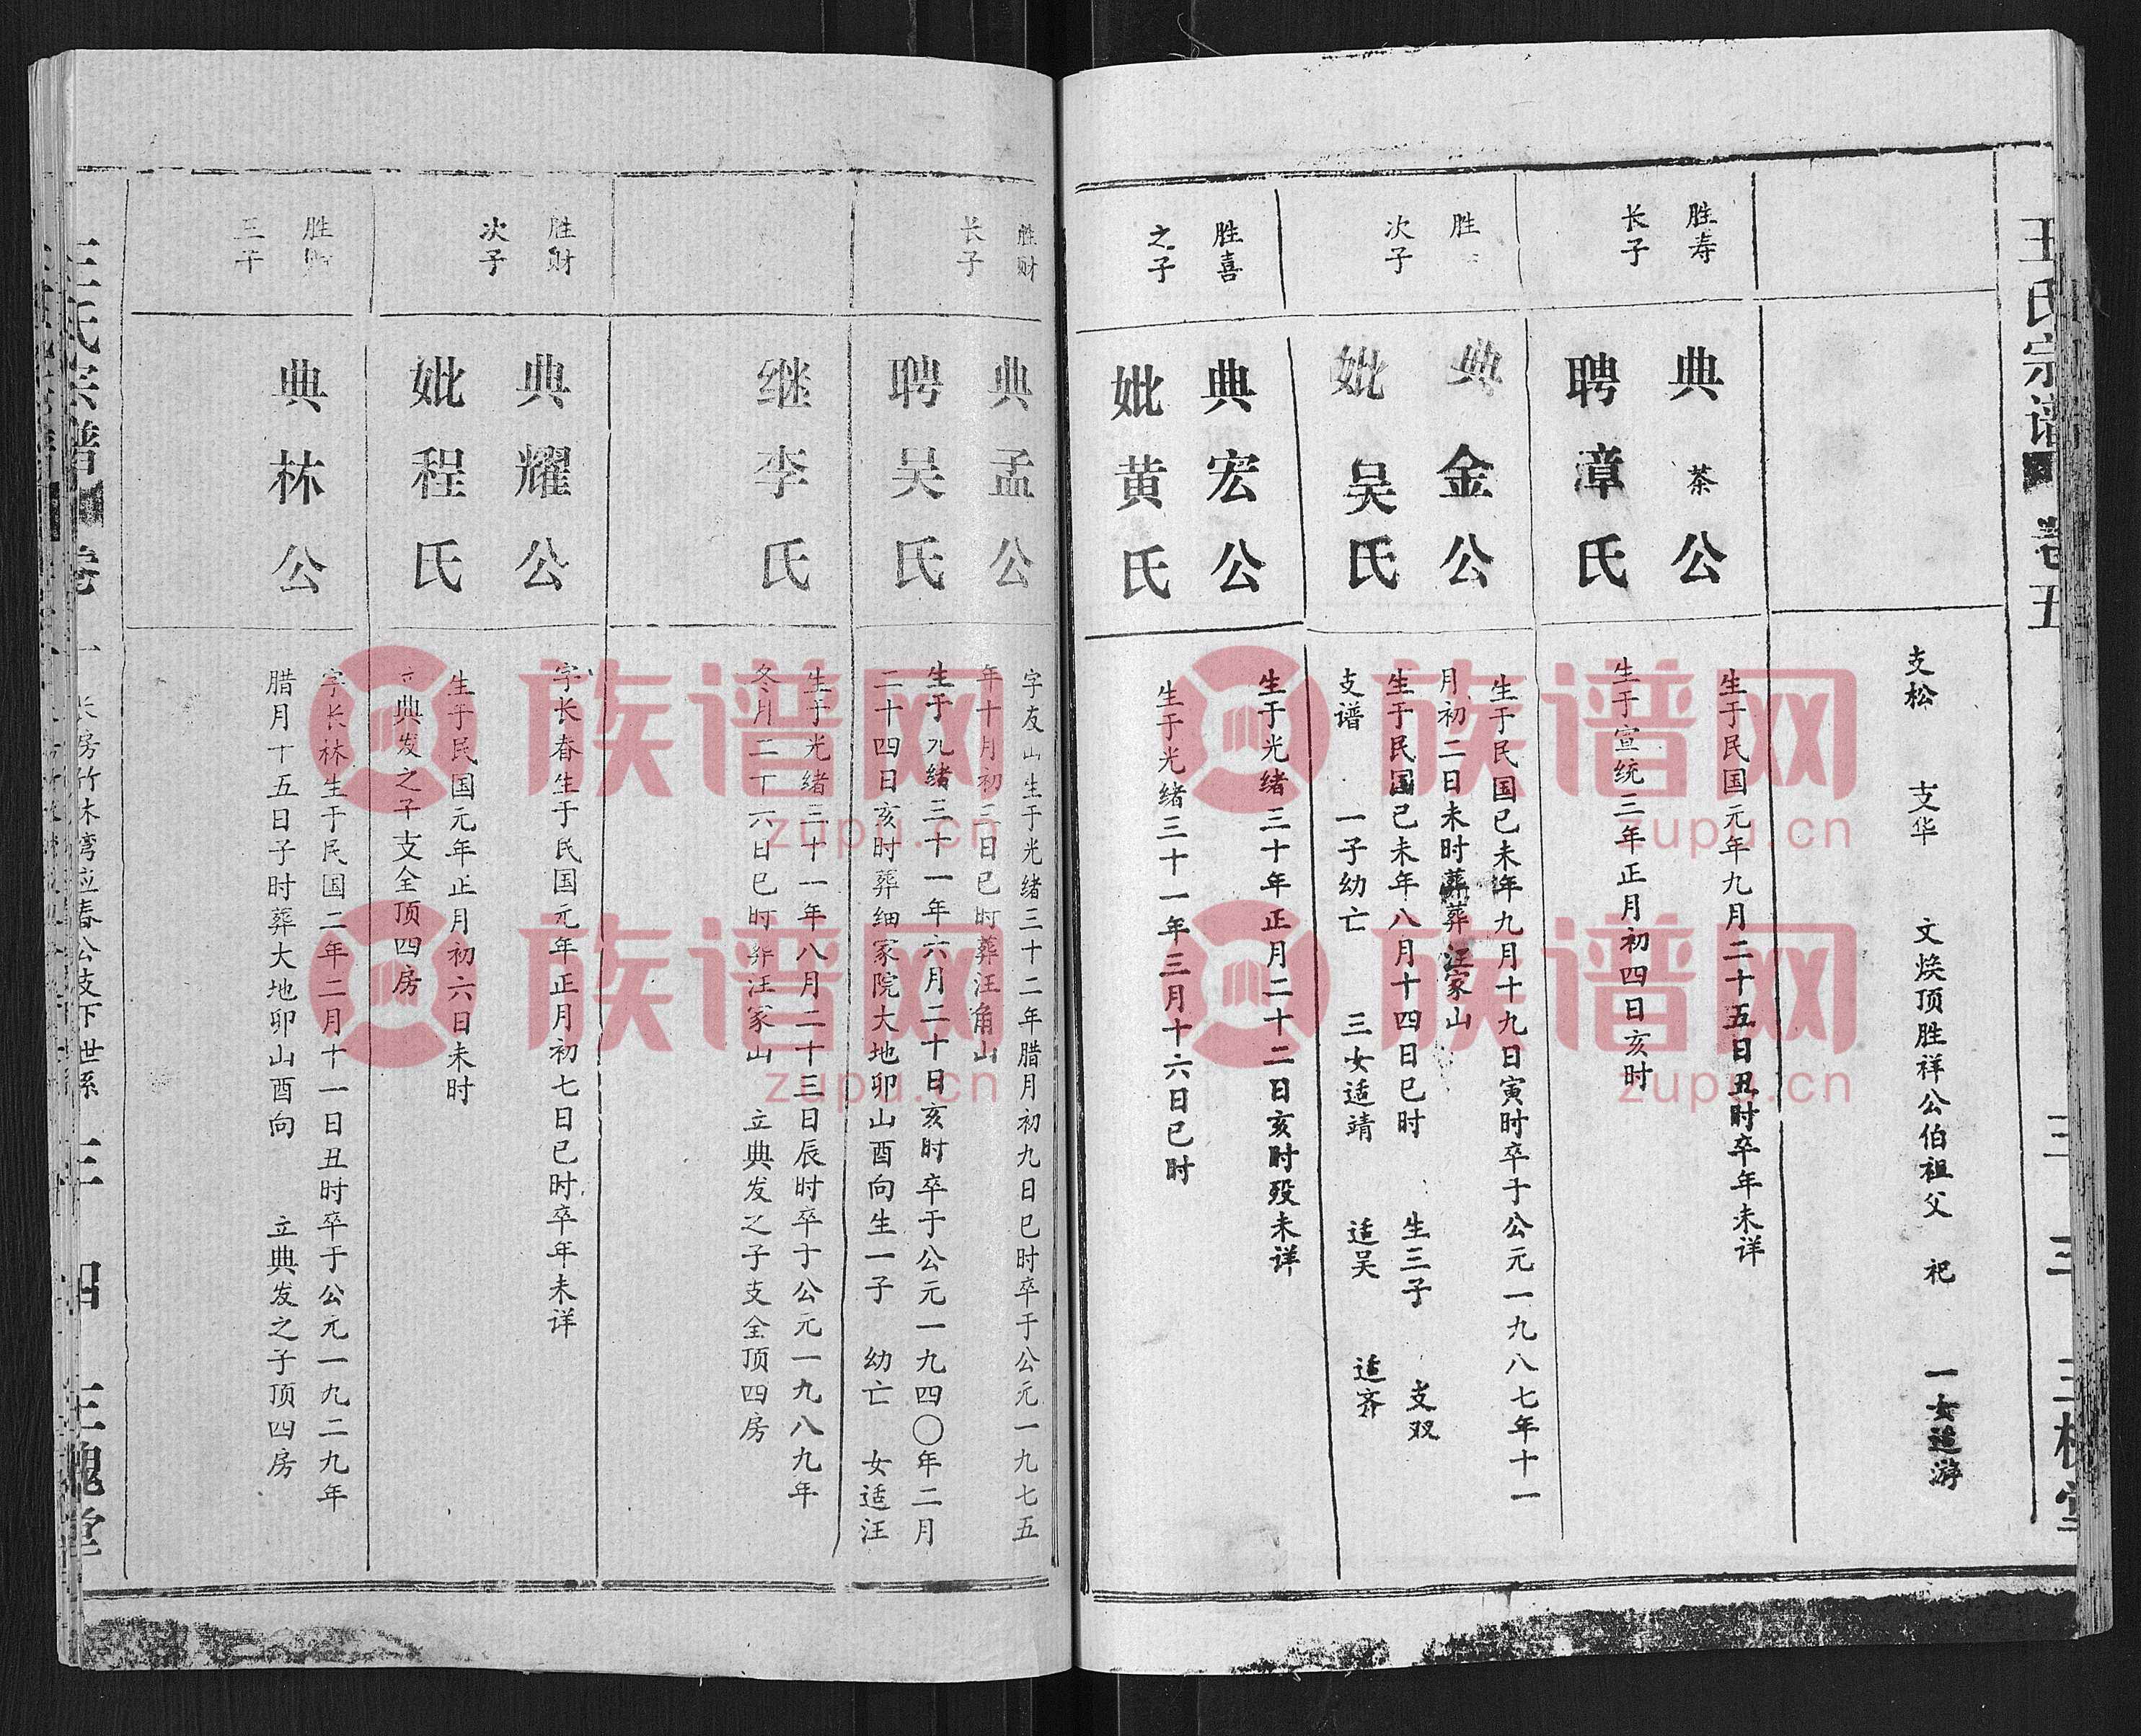 王氏宗谱
卷五
三
三槐堂
支松 支华 文焕顶胜祥公伯祖父 祀 一女适游
胜寿
长子
典茶公
聘漳氏
生于民国元年九月二十五日丑时卒年未详
生于宣统三年正月初四日亥时
胜
次子
典金公
妣吴氏
生于民国己未年九月十九日寅时卒于公元一九八七年十一
月初二日未时葬汪家山
生于民国己未年八月十四日巳时 生三子 支双
支谱 一子幼亡 三女适靖 适吴 适齐
胜喜
之子
典宏公
妣黄氏
生于光绪三十年正月二十二日亥时殁未详
生于光绪三十一年三月十六日巳时
胜财
长子
典孟公
聘吴氏
字友山生于光绪三十二年腊月初九日巳时卒于公元一九七五
年十月初三日巳时葬汪角山
生于光绪三十一年六月二十日亥时卒于公元一九四〇年二月
二十四日亥时葬细家院大地卯山酉向生一子 幼亡 女适汪
继李氏
生于光绪三十一年八月二十三日辰时卒于公元一九八九年
冬月二十六日巳时葬汪家山 立典发之子支全顶四房
胜财
次子
典耀公
妣程氏
字长春生于民国元年正月初七日巳时卒年未详
生于民国元年正月初六日未时
立典发之子支全顶四房
胜财
三子
典林公
字长林生于民国二年二月十一日丑时卒于公元一九二九年
腊月十五日子时葬大地卯山酉向 立典发之子顶四房
王氏宗谱
卷
一
长房竹林湾应春公支下世系
三
四
三槐堂
族谱网
zupu.cn
族谱网
zupu.cn
族谱网
zupu.cn
族谱网
zupu.cn